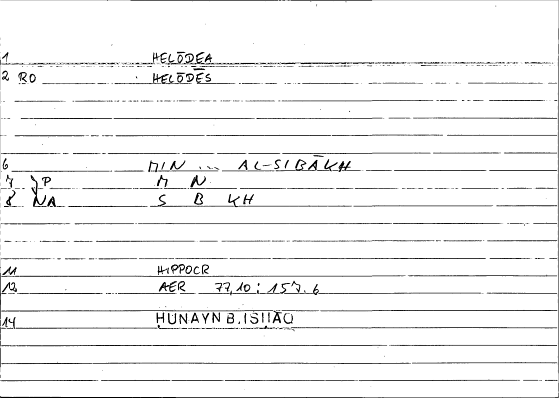 1 HELŌDEA
2 RO HELŌDĒS
6 MIN ... AL-SIBĀKH
7 JP M N
8 NA S B KH
11 HIPPOCR
12 AER 77,10 : 157.6
14 ḤUNAYN B. ISḤĀQ